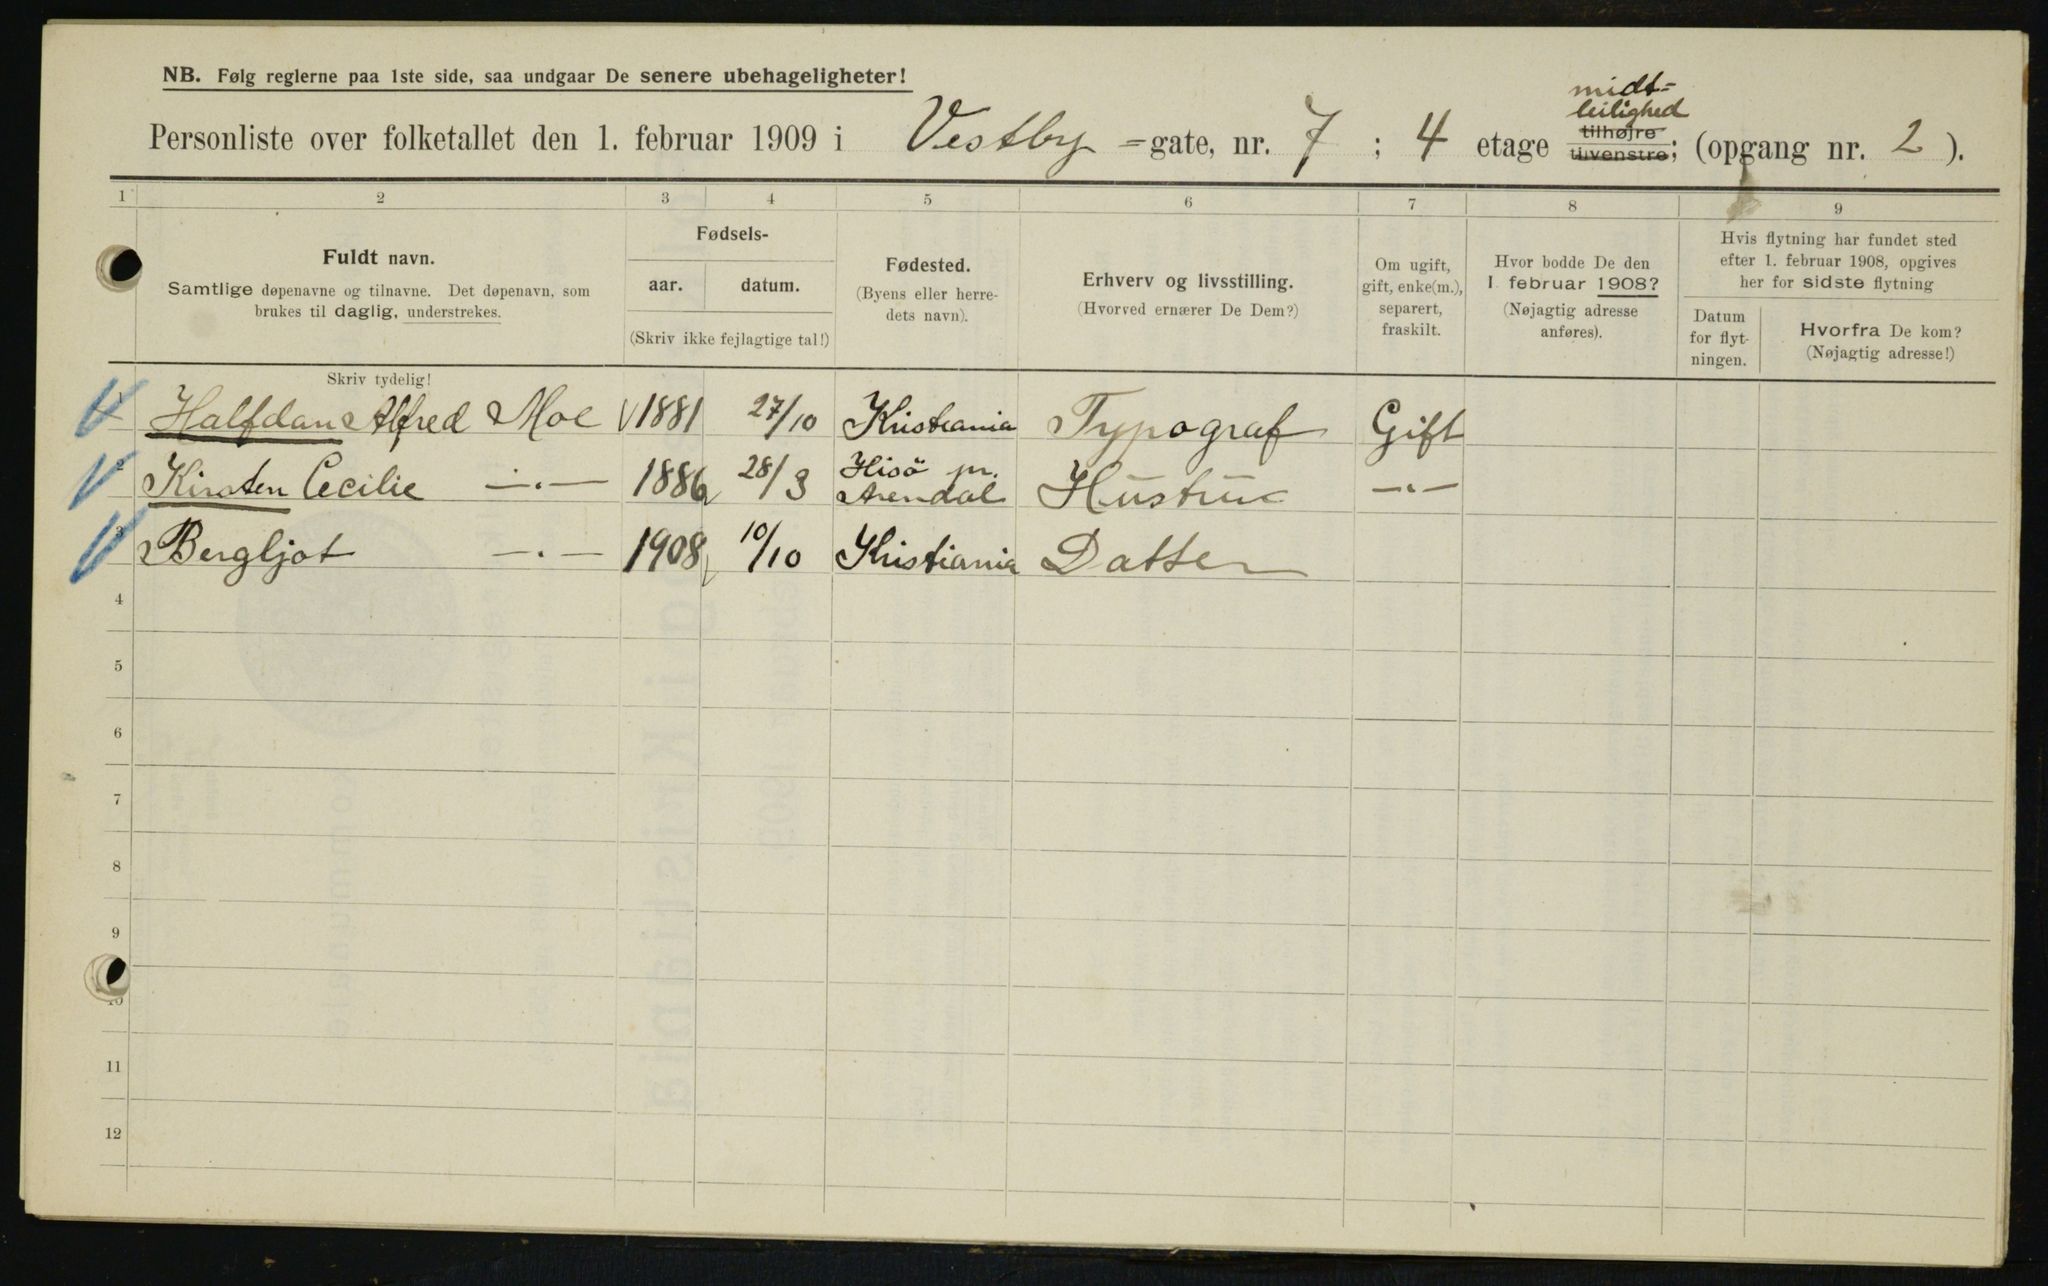 NB. Følg reglerne paa 1ste side, saa undgaar De senere ubehageligheter!
midt-
leilighed
Personliste over folketallet den 1. februar 1909 i Vestby =gate, nr. 7 ; 4 etage tilhøjre tilvenstre; (opgang nr. 2 ).
1 2 3 4 5 6 7 8 9
Fuldt navn.
Samtlige døpenavne og tilnavne. Det døpenavn, som
brukes til daglig, understrekes.
Skriv tydelig!
Fødsels-
aar. datum.
(Skriv ikke fejlagtige tal!)
Fødested.
(Byens eller herre-
dets navn).
Erhverv og livsstilling.
(Hvorved ernærer De Dem?)
Om ugift,
gift, enke(m.),
separert,
fraskilt.
Hvor bodde De den
1 februar 1908?
(Nøjagtig adresse
anføres).
Hvis flytning har fundet sted
efter 1. februar 1908, opgives
her for sidste flytning
Datum
for flyt-
ningen.
Hvorfra De kom?
(Nøjagtig adresse!)
1 Halfdan Alfred Moe 1881 27/10 Kristiania Typograf Gift
2 Kirsten Cecilie —"— 1886 28/3 Hisö pr. Arendal Hustru —"—
3 Bergljot —"— 1908 10/10 Kristiania Datter
4
5
6
7
8
9
10
11
12